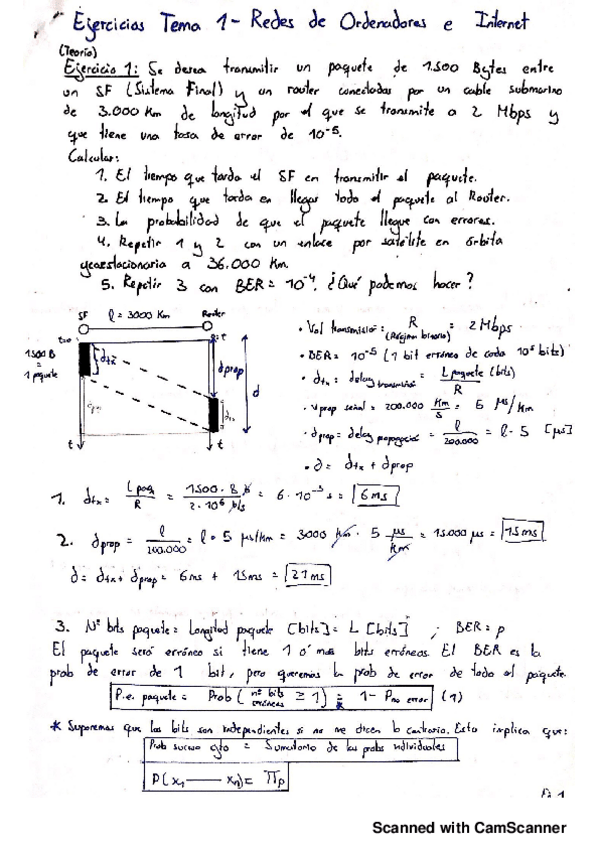 Ejercicios Tema 1 - Redes de Ordenadores e Internet
(Teoría)
Ejercicio 1: Se desea transmitir un paquete de 1.500 Bytes entre
un SF (Sistema Final) y un router conectados por un cable submarino
de 3.000 Km de longitud por el que se transmite a 2 Mbps y
que tiene una tasa de error de 10⁻⁵.
Calcular:
1. El tiempo que tarda el SF en transmitir el paquete.
2. El tiempo que tarda en llegar todo el paquete al Router.
3. La probabilidad de que el paquete llegue con errores.
4. Repetir 1 y 2 con un enlace por satélite en órbita
geoestacionaria a 36.000 Km.
5. Repetir 3 con BER = 10⁻⁴. ¿Qué podemos hacer?
SF l = 3000 Km Router
t=0
1500 B
= 1 paquete
dtx
dprop
d
dtx
t t
• Vel transmisión: R (Régimen binario) = 2 Mbps
• BER = 10⁻⁵ (1 bit erróneo de cada 10⁵ bits)
• dtx = delay transmisión = L paquete (bits) / R
• vprop señal = 200.000 Km/s = 5 µs/Km
• dprop = delay propagación = l / 200.000 = l · 5 [µs]
• d = dtx + dprop
1. dtx = L paq / R = 1500 · 8 b / 2 · 10⁶ b/s = 6 · 10⁻³ s = 6 ms
2. dprop = l / 200.000 = l · 5 µs/km = 3000 Km · 5 µs/Km = 15.000 µs = 15 ms
d = dtx + dprop = 6ms + 15ms = 21 ms
3. Nº bits paquete = Longitud paquete [bits] = L [bits] ; BER = p
El paquete será erróneo si tiene 1 ó más bits erróneos. El BER es la
prob de error de 1 bit, pero queremos la prob de error de todo el paquete.
P.e. paquete = Prob (nº bits erróneos ≥ 1) = 1 - Pno error (1)
* Suponemos que los bits son independientes si no me dicen lo contrario. Esto implica que:
Prob suceso = Sumatorio de las probs individuales
P(x₁ — xₙ) = πp
1
Scanned with CamScanner